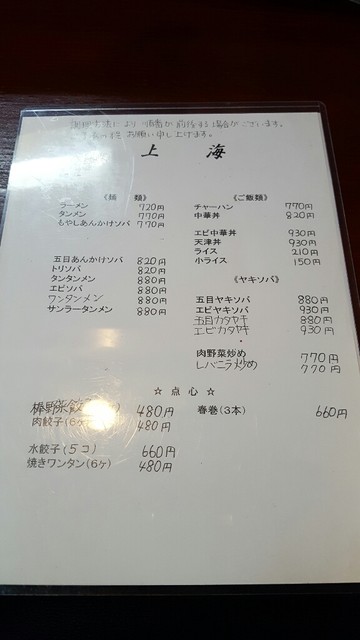 調理方法により順番が前後する場合がございます。
お願い申し上げます。
上 海
《麺 類》
ラーメン 720円
タンメン 770円
もやしあんかけソバ 770円
五目あんかけソバ 820円
トリソバ 820円
タンタンメン 880円
エビソバ 880円
ワンタンメン 880円
サンラータンメン 880円
《ご飯類》
チャーハン 770円
中華丼 820円
エビ中華丼 930円
天津丼 930円
ライス 210円
小ライス 150円
《ヤキソバ》
五目ヤキソバ 880円
エビヤキソバ 930円
五目カタヤキ 880円
エビカタヤキ 930円
肉野菜炒め 770円
レバニラ炒め 770円
☆ 点心 ☆
野菜餃 480円
肉餃子(6ケ) 480円
水餃子(5コ) 660円
焼きワンタン(6ケ) 480円
春巻(3本) 660円